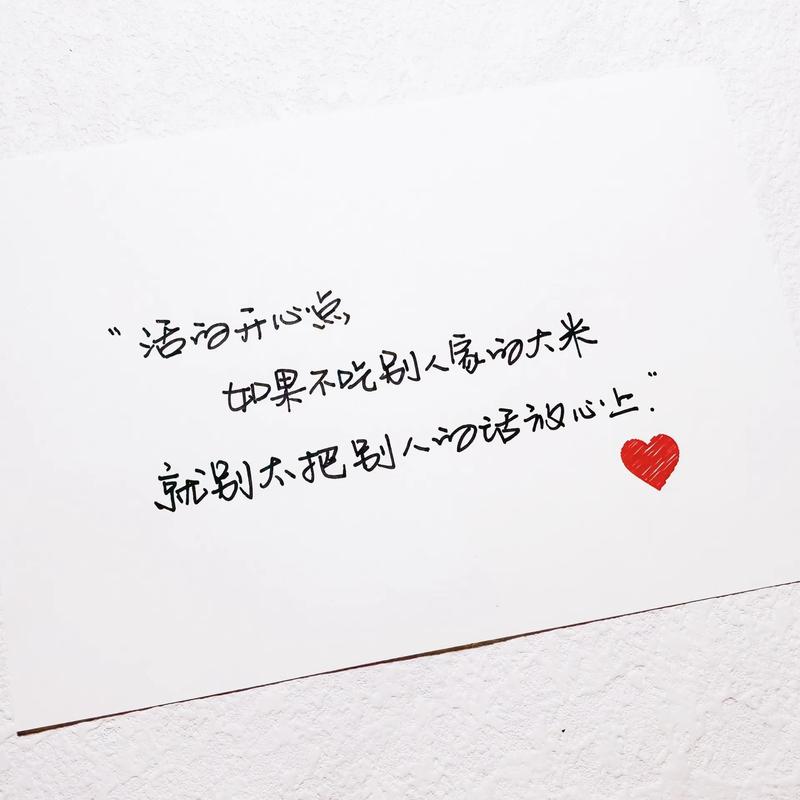 “活的开心点
如果不吃别人家的大米
就别太把别人的话放心上.”